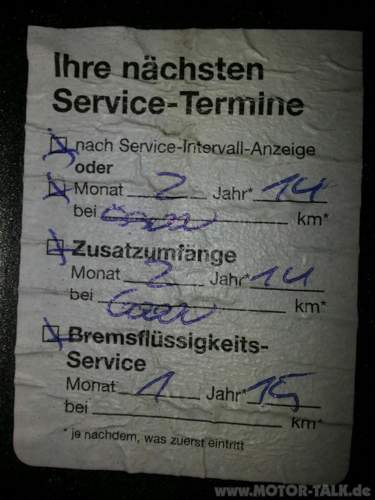 Ihre nächsten
Service-Termine
nach Service-Intervall-Anzeige
oder
Monat 2 Jahr* 14
bei km*
Zusatzumfänge
Monat 2 Jahr* 14
bei km*
Bremsflüssigkeits-
Service
Monat 1 Jahr* 15
bei km*
* je nachdem, was zuerst eintritt
www.MOTOR-TALK.de